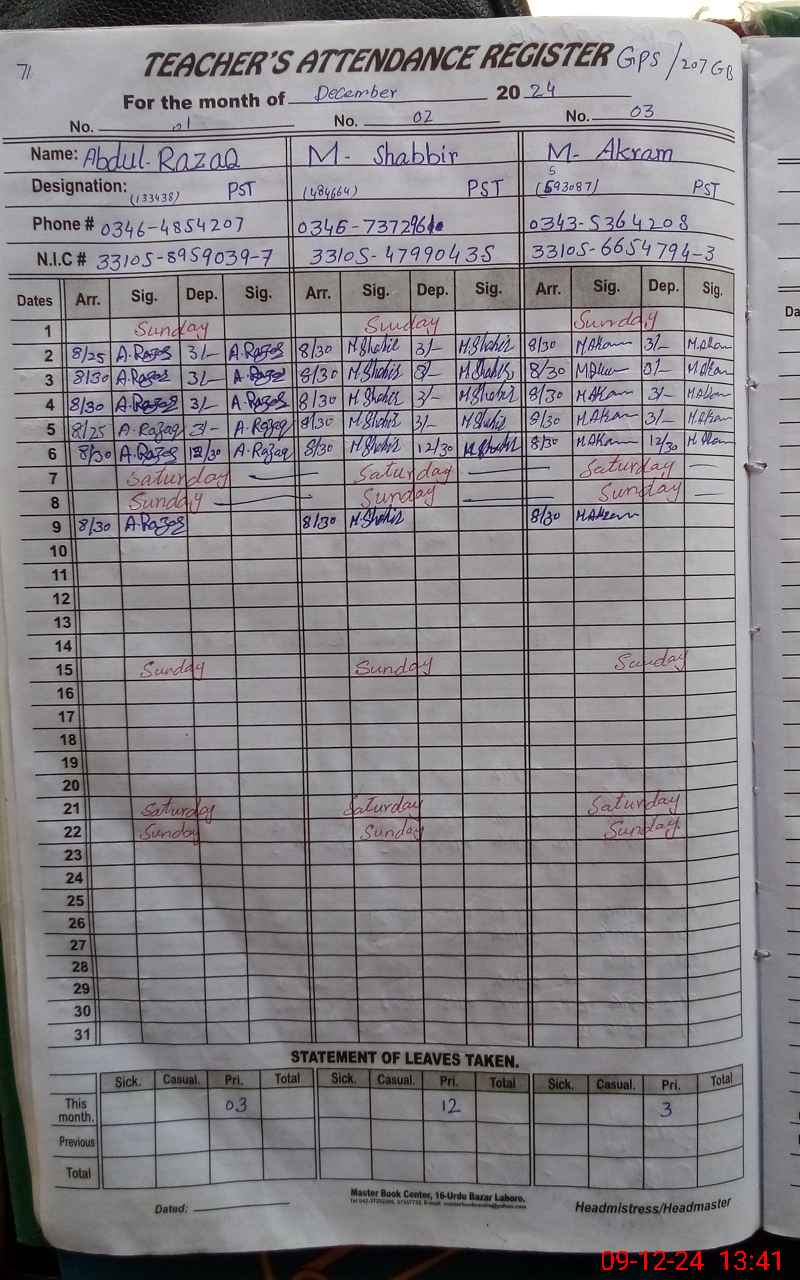 71
TEACHER'S ATTENDANCE REGISTER GPS/207GB
For the month of December 2024
No. 01 No. 02 No. 03
Name: Abdul-Razaq M- Shabbir M- Akram
Designation: (133438) PST (484664) PST PST
Phone # 0346-4854207 0343-5364208
N.I.C # 33105-8959039-7 33105-6654794-3
Dates Arr. Sig. Dep. Sig. Arr. Sig. Dep. Sig. Arr. Sig. Dep. Sig.
1 Sunday Sunday Sunday
2 8/25 A.Razaq 3/- A.Razaq 8/30 M.Shabir 3/- M.Shabir 8/30 M.Akram 3/- M.Akram
3 8/30 A.Razaq 3/- A.Razaq 8/30 M.Shabir M.Shabir 8/30 M.Akram M.Akram
4 8/30 A.Razaq 3/- A.Razaq 8/30 M.Shabir 3/- M.Shabir 8/30 M.Akram 3/- M.Akram
5 8/25 A.Razaq 3/- A.Razaq 8/30 M.Shabir 3/- M.Shabir 8/30 M.Akram 3/- M.Akram
6 8/30 A.Razaq 12/30 A.Razaq 8/30 M.Shabir 12/30 M.Shabir 8/30 M.Akram 12/30 M.Akram
7 Saturday Saturday Saturday
8 Sunday Sunday Sunday
9 8/30 A.Razaq 8/30 M.Shabir 8/30 M.Akram
10
11
12
13
14
15 Sunday Sunday Sunday
16
17
18
19
20
21 Saturday Saturday Saturday
22 Sunday Sunday Sunday
23
24
25
26
27
28
29
30
31
STATEMENT OF LEAVES TAKEN.
Sick. Casual. Pri. Total Sick. Casual. Pri. Total Sick. Casual. Pri. Total
This month. 03 12 3
Previous
Total
Master Book Center, 16-Urdu Bazar Lahore.
Dated: Headmistress/Headmaster
09-12-24 13:41